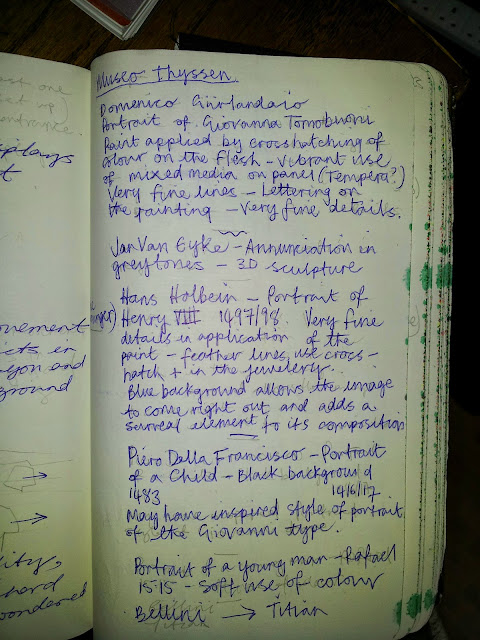 Museo Thyssen.
Domenico Ghirlandaio
Portrait of Giovanna Tornobuoni
Paint applied by crosshatching of
colour on the flesh - vibrant use
of mixed media on panel (Tempera?)
Very fine lines - Lettering on
the painting - Very fine details.
Jan Van Eyke - Annunciation in
greytones - 3D sculpture
Hans Holbein - Portrait of
Henry VIII 1497/98. Very fine
details in application of the
paint - feather lines, use cross-
hatch + in the jewelery.
Blue background allows the image
to come right out and adds a
surreal element to its composition
Piero Della Francisco - Portrait
of a Child - Black background
1483 14/6/17
May have inspired style of portrait
of the Giovanni type.
Portrait of a young man - Rafael
1515 - Soft use of colour
Bellini → Titian
ast one
set up)
entrance.
splays
t
nger)
ovement
cts in
yon and
ground
lity,
herd
wondered